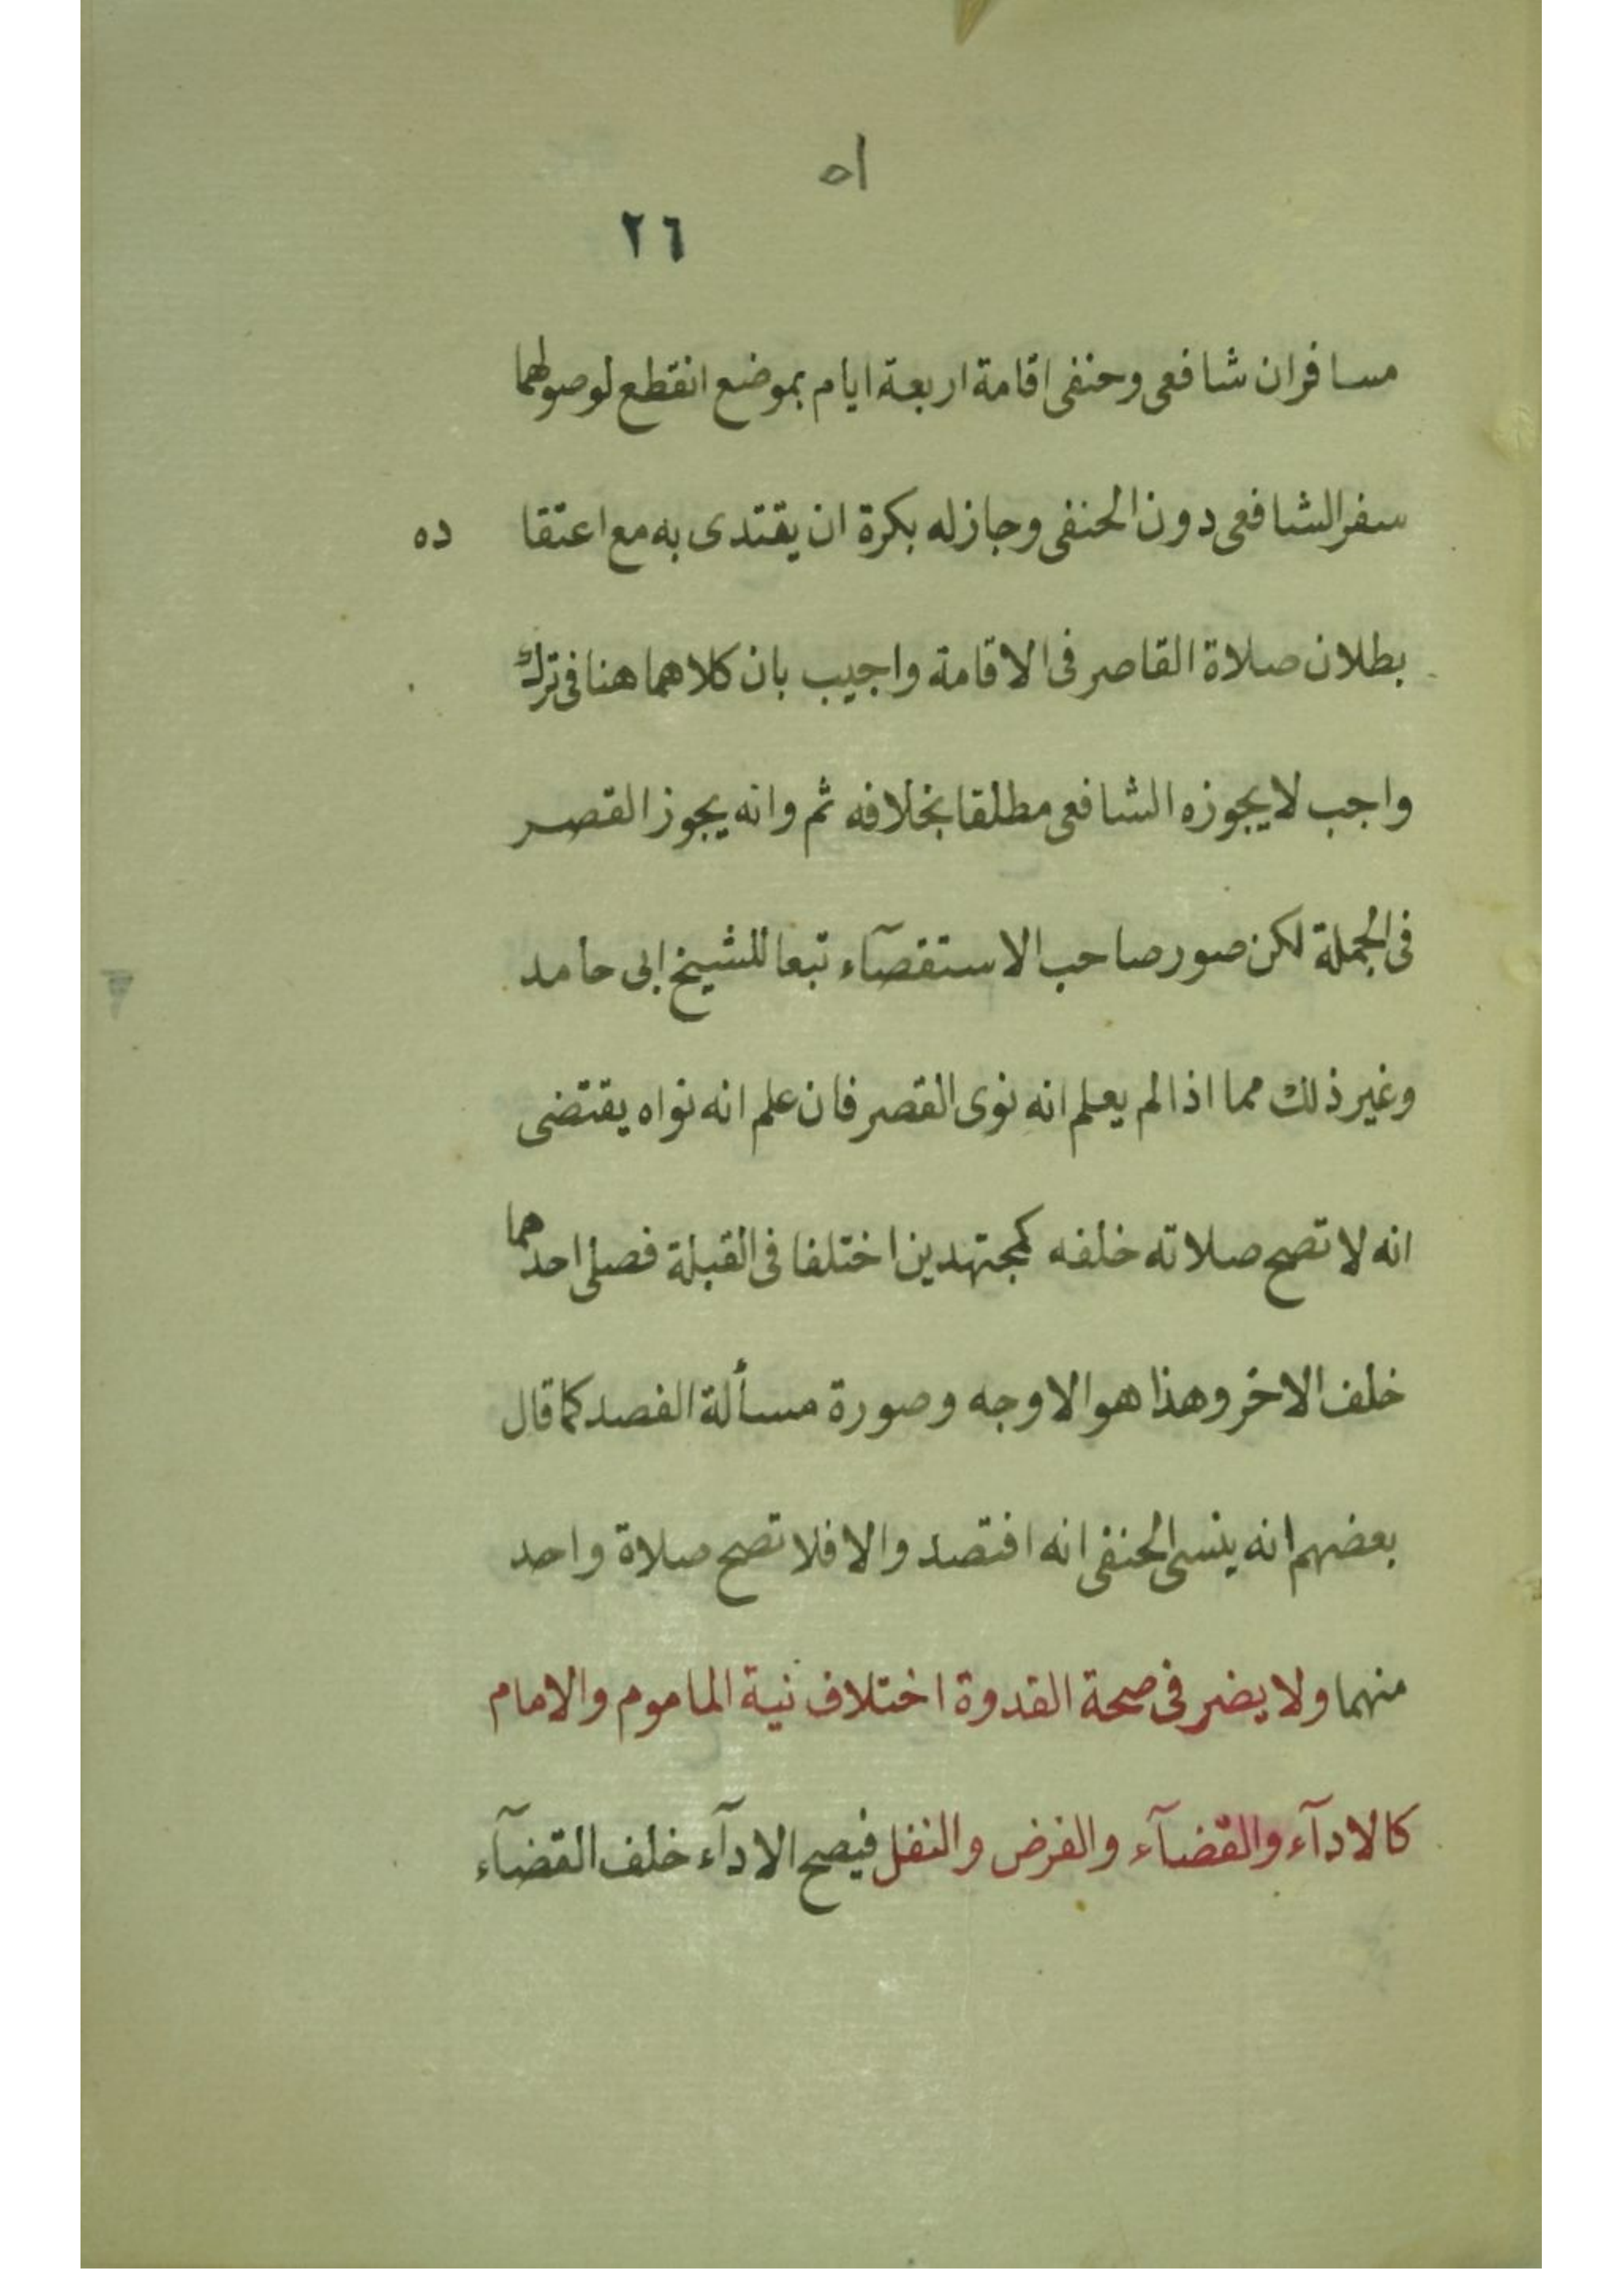 ٥١
٢٦
مسافران شافعى وحنفى اقامة اربعة ايام بموضع انقطع لوصولهما
سفر الشافعى دون الحنفى وجاز له بكرة ان يقتدى به مع اعتقاده
بطلان صلاة القاصر فى الاقامة واجيب بان كلاهما هنا فى ترك
واجب لا يجوزه الشافعى مطلقا بخلافه ثم وانه يجوز القصر
فى الجملة لكن صور صاحب الاستقصآء تبعا للشيخ ابى حامد
وغير ذلك مما اذا لم يعلم انه نوى القصر فان علم انه نواه يقتضى
انه لا تصح صلاته خلفه كمجتهدين اختلفا فى القبلة فصلى احدهما
خلف الاخر وهذا هو الاوجه وصورة مسألة الفصد كما قال
بعضهم انه ينسى الحنفى انه افتصد والا فلا تصح صلاة واحد
منهما ولا يضر فى صحة القدوة اختلاف نية الماموم والامام
كالادآء والقضآء والفرض والنفل فيصح الادآء خلف القضآء